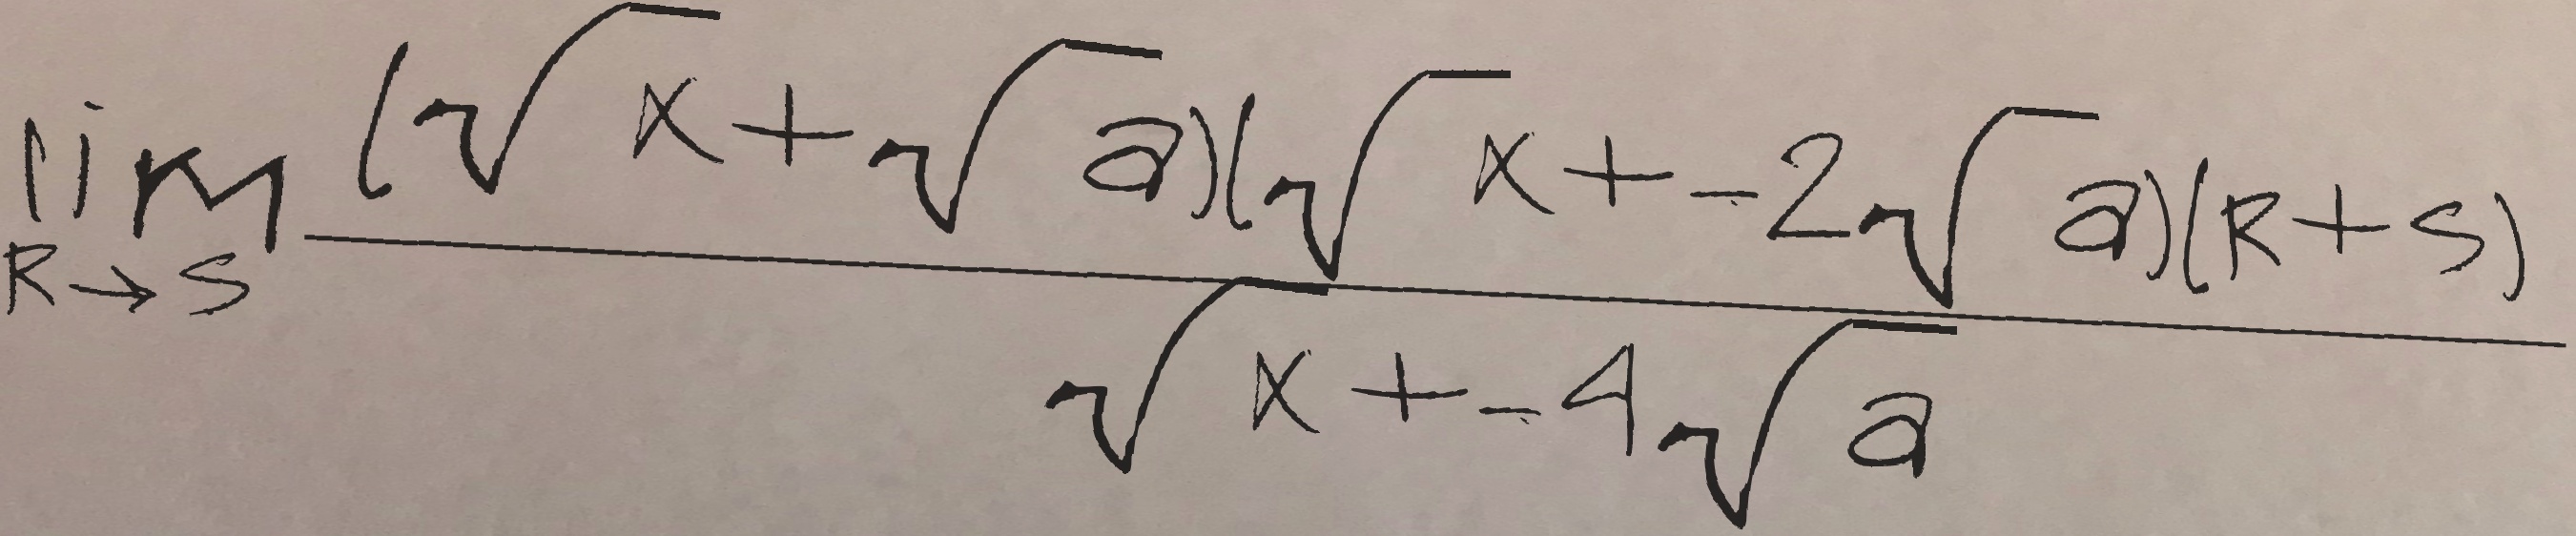 \lim_{R \to S} \frac{(\sqrt{x} + \sqrt{a})(\sqrt{x} + -2\sqrt{a})(R + S)}{\sqrt{x} + -4\sqrt{a}}